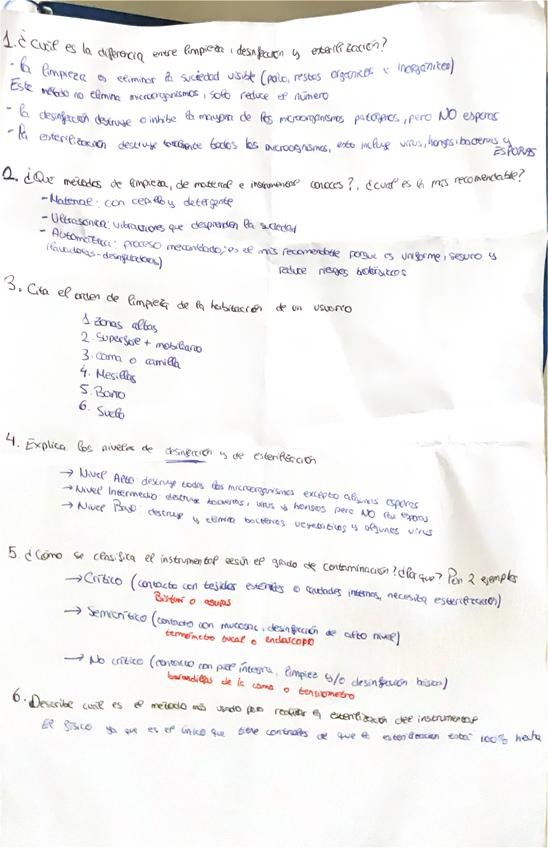 1. ¿Cuál es la diferencia entre limpieza, desinfección y esterilización?
- La limpieza es eliminar la suciedad visible (polvo, restos orgánicos e inorgánicos)
Este método no elimina microorganismos, solo reduce el número
- La desinfección destruye o inhibe la mayoría de los microorganismos patógenos, pero NO esporas
- La esterilización destruye totalmente todos los microorganismos, esto incluye virus, hongos, bacterias y
ESPORAS
2. ¿Qué métodos de limpieza, de material e instrumental conoces?, ¿cuál es la más recomendable?
- Material: con cepillo y detergente
- Ultrasónica: vibraciones que desprenden la suciedad
- Automática: proceso mecanizado, es el más recomendable porque es uniforme, seguro y
(lavadoras-desinfectadoras) reduce riesgos biológicos
3. Cita el orden de limpieza de la habitación de un usuario
1. Zonas altas
2. Superficie + mobiliario
3. Cama o camilla
4. Mesillas
5. Baño
6. Suelo
4. Explica los niveles de desinfección y de esterilización
→ Nivel Alto destruye todos los microorganismos excepto algunas esporas
→ Nivel Intermedio: destruye bacterias, virus y hongos pero NO esporas
→ Nivel Bajo: destruye y elimina bacterias vegetativas y algunos virus
5. ¿Cómo se clasifica el instrumental según el grado de contaminación? ¿Por qué? Pon 2 ejemplos
→ Crítico (contacto con tejidos estériles o cavidades internas, necesita esterilización)
Bisturí o agujas
→ Semicrítico (contacto con mucosas, desinfección de alto nivel)
termómetro bucal o endoscopio
→ No crítico (contacto con piel íntegra, limpieza y/o desinfección básica)
barandillas de la cama o tensiometro
6. Describe cuál es el método más usado para realizar la esterilización del instrumental
El físico ya que es el único que tiene controles de que la esterilización está 100% hecha